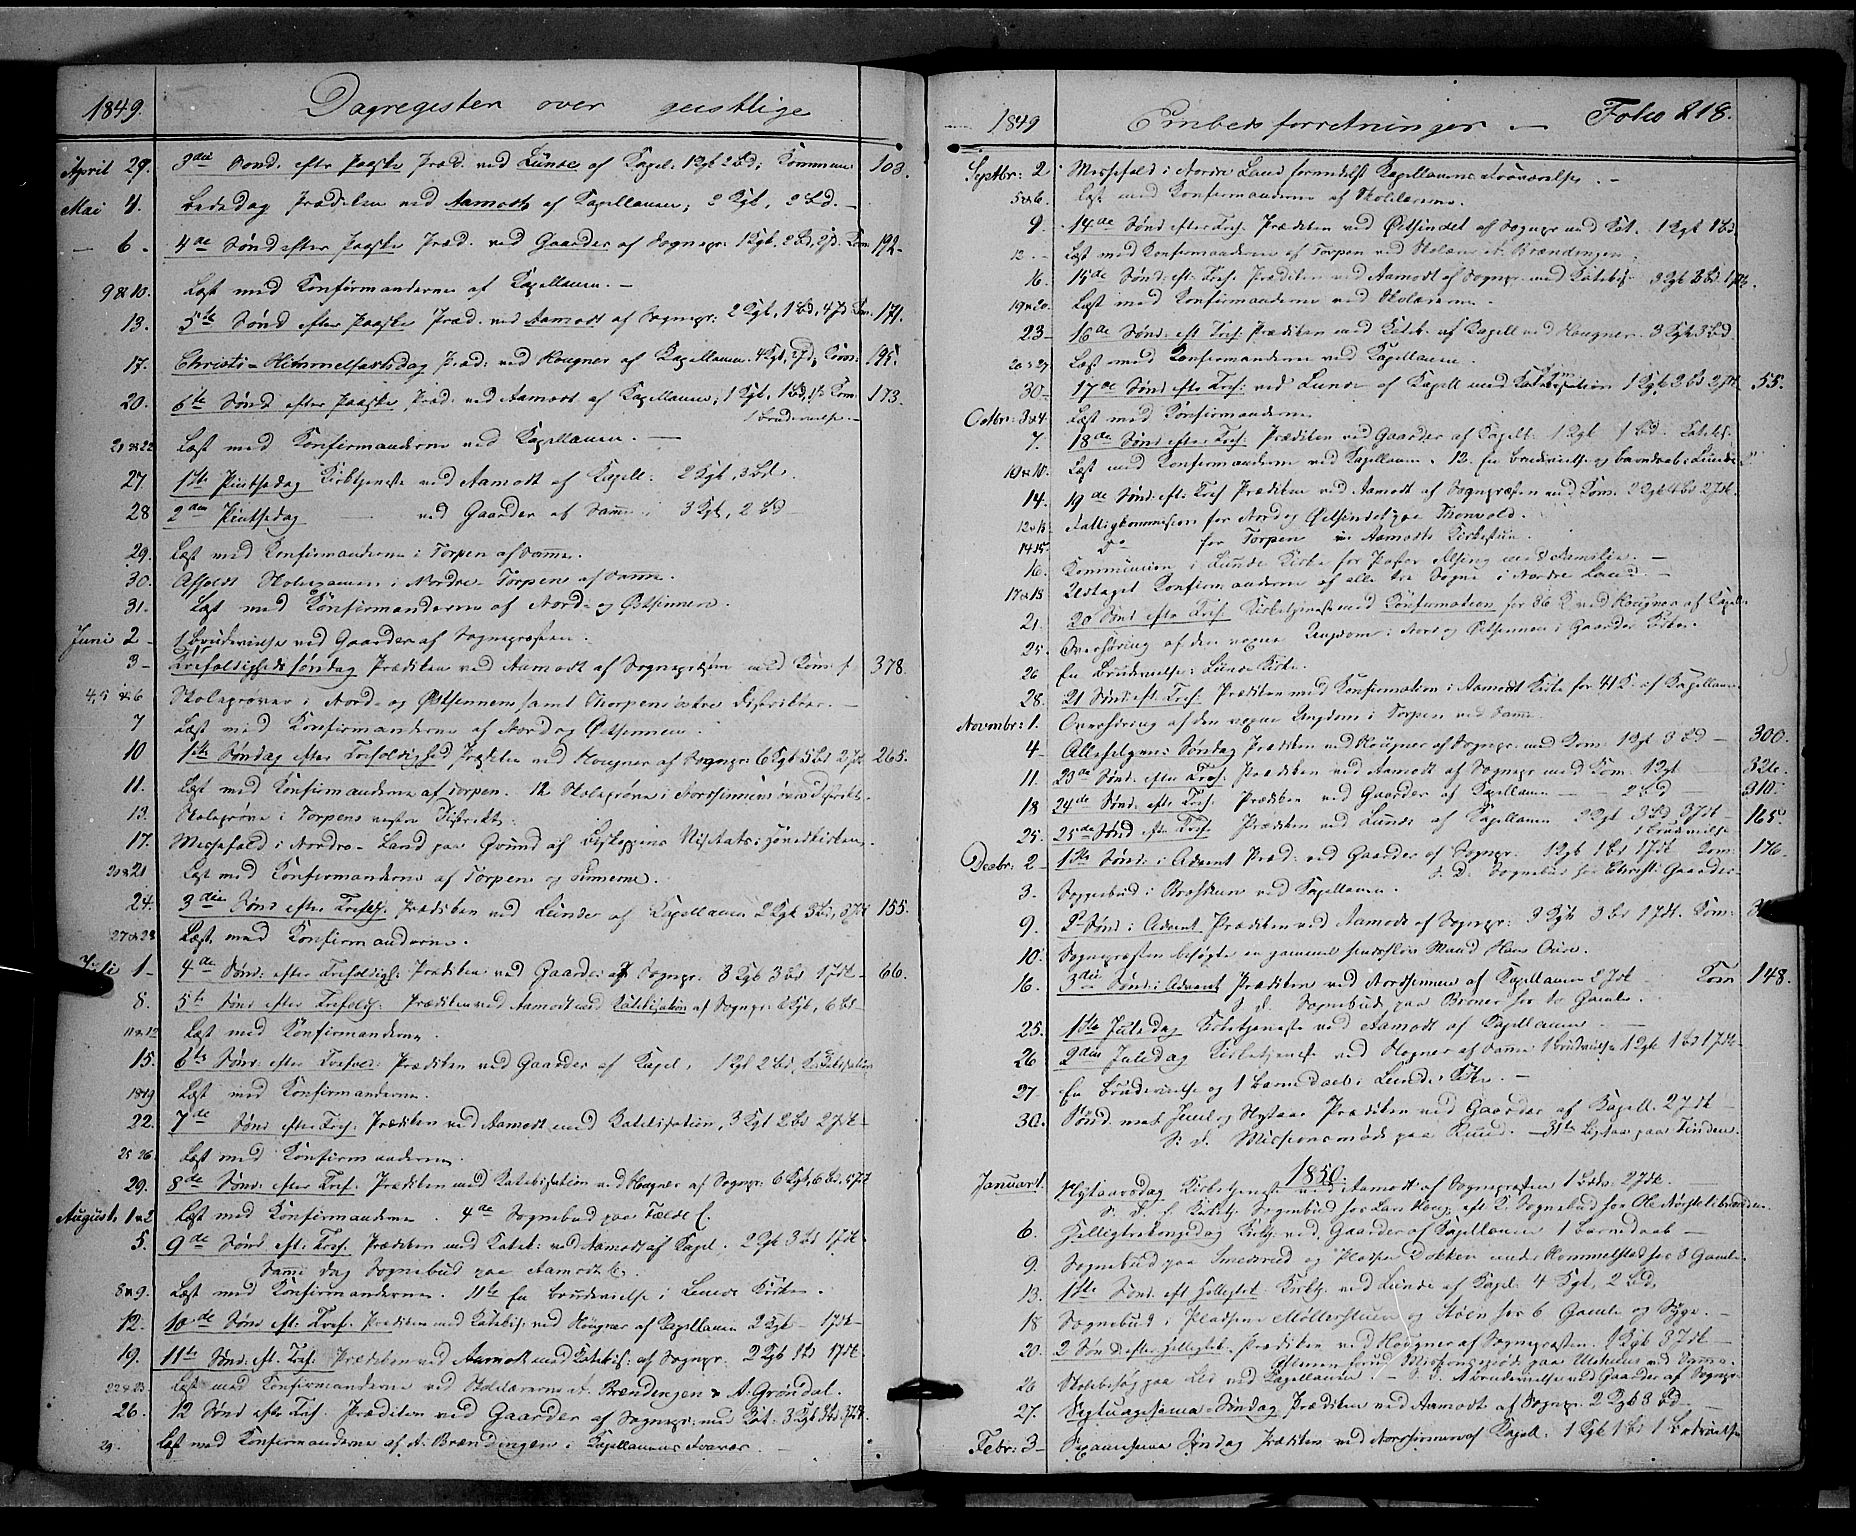 1849. Dagregister over geistlige
April 29. 3die Sønd. efter Paaske Præd. ved Lunde af Kapel: 1 Kgt 2 Bd; Kommun 103.
Mai 4. Bededag Prædiken ved Aamodt af Kapellanen; 2 Kgt, 2 Bd. —
— 6. 4de Sønd efter Paaske Præd. ved Gaarder af Sognepr: 1 Kgt. 2 Bd, 2 Jd. Kom 192-
9 & 10. Læst med Konfirmanderne af Kapellanen. —
13. 5te Sønd efter Paaske Præd. ved Aamodt af Sognepr: 2 Kgt, 1 Bd, 4 Jd Kom. 171.
17. Christi-Himmelfartsdag Præd: ved Hougner af Kapellanen. 4 Kgt, Jd, Kom: 195.
20. 6te Sønd efter Paaske, Præd. ved Aamodt af Kapellanen; 1 Kgt, 1 Bd, Kom. 173.
1 Brudevielse. —
21 & 22 Læst med Konfirmanderne ved Kapellanen. —
27. 1ste Pintsedag Kirketjeneste ved Aamodt af Kapell: 2 Kgt, 3 Bd.
28 2den Pintsedag — ved Gaarder af Samme. 3 Kgt, 2 Bd
29. Læst med Konfirmanderne i Torpen af Samme.
30. Afholdt Skolexamen i Nordre Torpen af Samme.
31. Læst med Konfirmanderne af Nord- og Østsinnen.
Juni 2 — 1 Brudevielse ved Gaarder af Sognepræsten.
3 — Trefoldigheds søndag Prædiken ved Aamodt af Sognepræsten med Kom: 378.
4, 5 & 6 Skoleprøver i Nord- og Østsinnen samt Thorpens østre Distrikter. —
7 Læst med Konfirmanderne af Nord og Østsinnen.
10 1ste Søndag efter Trefoldighed Prædiken ved Hougner af Sognepr: 6 Kgt 5 Bd 2 Jdk 265.
11. Læst med Konfirmanderne af Torpen. 12 Skoleprøve i Nordsinnens øvre Distrikt.
13. Skoleprøve i Torpens vestre Distrikt.
17. Messefald i Nordre-Land paa Grund af Biskoppens Visitats i Hovedkirken.
20 & 21 Læst med Konfirmanderne af Torpen og Sinnerne.
24. 3die Sønd efter Trefoldh: Prædiken ved Lunde af Kapellanen 2 Kgt 3 Bd, 3 Jdk 155.
27 & 28 Læst med Konfirmanderne.
Juli 1 — 4de Sønd: efter Trefoldigh: Prædiken ved Gaarder af Sognepr: 3 Kgt 3 Bd 1 Jdk — 66.
8. 5te Sønd efter Trefoldg: Prædiken ved Aamodt med Katekisation af Sognepr: 6 Kgt, 6 Bd —
11 & 12 Læst med Konfirmanderne.
15. 6te Sønd. efter Trefold: Prædiken ved Gaarder af Kapel, 1 Kgt 2 Bd, Katekisation
18 & 19 Læst med Konfirmanderne.
22. 7de Sønd efter Tref: Prædiken ved Aamodt med Katekisation, 3 Kgt 2 Bd 2 Jdk —
25 26. Læst med Konfirmanderne
29. 8de Sønd: efter Tref. Prædiken med Katekisation ved Hougner af Sognepr: 6 Kgt, 6 Bd.
August. 1 & 2 Læst med Konfirmanderne. 4de Sognebud paa
5. 9de Sønd. eft: Tref. Prædiken med Katek: ved Aamodt af Kapel. 2 Kgt 3 Bd 1 Jdk —
Samme dag Sognebud paa Aamodt
8 & 9. Læst med Konfirmanderne. 11te En Brudevielse i Lunde Kirke.
12. 10de Sønd eft. Tref. Prædiken med Katekis: ved Hougner af Kapellanen 2 Kgt — 1 Jdk —
19. 11te Sønd: eft. Tref: Prædiken ved Aamodt med Katekis: af Sognepr: 2 Kgt 1 Bd 1 Jdk.
22 & 23. Læst med Konfirmanderne ved Skolelærerne A. Brændingen & A. Grøndal.
26. 12 Sønd efter Tref. Prædiken ved Gaarder af Sognepr: med Kat: 3 Kgt 3 Bd, 3 Jdk.
29. Læst med Konfirmanderne af A. Brændingen i Kapellanens Fravær. —
1849 Embedsforretninger — Folio 218.
Septbr: 2 Messefald i Nordre Land formedelst Kapellanens Fraværelse. —
5 & 6. Læst med Konfirmanderne af Skolelærerne.
9. 14de Sønd efter Tref: Prædiken ved Østsindet af Sognepr med Kat. 1 Kgt 1 Bd
12. — Læst med Konfirmanderne af Torpen ved Skolelærer A. Brændingen.
16. 15de Sønd: eft. Tref. Prædiken ved Aamodt af Sognepr: med Katekis: 3 Kgt 2 Bd 1 Jdk.
19 & 20. Læst med Konfirmanderne ved Skolelærerne.
23 — 16de Sønd: eft Tref: Prædiken med Katek: af Kapell ved Hougner. 3 Kgt 3 Bd.
26 & 27 Læst med Konfirmanderne ved Kapellanen.
30 — 17de Sønd efter Tref: ved Lunde af Kapell med Katekisation 1 Kgt. 2 Bd 2 Jdk. 55.
Octbr: 3 & 4. Læst med Konfirmanderne
7. 18de Sønd efter Tref. Prædiken ved Gaarder af Kapell. 1 Kgt 1 Bd. Katekis:
10. Læst med Konfirmanderne ved Kapellanen. 12. En Brudevielse og Barndaab i Lunde
14. 19de Sønd: eft. Tref. Prædiken ved Aamodt af Sognepræsten med Kom: 2 Kgt 4 Bd 2 Jdk.
12 & 13. Fattigkommission for Nord og Østsindet paa Thonvold.
14 15. Do for Torpen — Aamodts Kirkestue.
16. Kommunion i Lunde Kirke for Pastor Alsing med Familie. —
17 & 18 Udtaget Konfirmanderne af alle tre Sogne i Nordre Land. —
21. 20 Sønd efter Tref. Kirketjeneste med Konfirmation for 36 K ved Hougner af Kapell.
25. Overhøring af den voxne Ungdom i Nord og Østsinnen i Gaarder Kirke.
26 En Brudevielse i Lunde Kirke.
28. 21 Sønd eft. Tref: Prædiken med Konfirmation i Aamodt Kirke for 41 K. af Kapellanen
Novmbr: 1. Overhøring af den voxne Ungdom i Torpen ved Samme.
4 — Allehelgens Søndag Prædiken ved Hougner af Sognepr. med Kom. 1 Kgt 3 Bd — 300.
11. 23de Sønd: efter Tref. Prædiken ved Aamodt af Sognepr med Kom. 1 Kgt — 326.
18 24de Sønd: efter Tref: Prædiken ved Gaarder af Kapellanen — 2 Bd — 310.
25. 25de Sønd efter Tref. Prædiken ved Lunde af Kapellanen 2 Kgt 3 Bd 3 Jdk — 165.
1 Brudevielse
Decbr: 2 — 1ste Sønd: i Advent Præd: ved Gaarder af Sognepr. 1 Kgt 1 Bd 1 Jdk Kom: 176.
S. D. Sognebud hos Christ: Gaarder.
3. Sognebud i ved Kapellanen.
9. 2. Sønd: i Advent Prædiken ved Aamodt af Sognepr: 3 Kgt 3 Bd 1 Jdk. Kom:
10. Sognepræsten besøgte en gammel sindssløv Mand Hans
16. 3die Sønd: i Advent Prædiken ved Nordsinnen af Kapellanen 2 Jdk — Kom 148.
S. D. Sognebud paa for to Gamle.
25. 1ste Juledag Kirketjeneste ved Aamodt af Kapellanen. —
26 2den Juledag Kirketjeneste ved Hogner af Samme 1 Brudevielse 1 Kgt 1 Bd 1 Jdk —
27 En Brudevielse og 1 Barnedaab i Lunde Kirke. —
30. Sønd. mel. Juul og Nytaar Prædiken ved Gaarder af Kapell. 2 Jdk —
S: D. Missionsmøde paa Ruud. — 31te paa Finden.
1850.
Januar 1. Nytaarsdag Kirketjeneste ved Aamodt af Sognepræsten 1 Bd. 2 Jdk.
S. D. Sognebud hos Lars Houg. Sognebud hos Ole
6. Helligtrekongedag Kirktj. ved Gaarder af Kapellanen 1 Barnedaab —
9. Sognebud paa Smedsrud og Pladsen Dokken under Hommelstad hos 3 Gamle
13. 1ste Sønd. eft Helligtrek. Kirktj. ved Lunde af Kapel: 4 Kgt, 2 Bd.
18 Sognebud i Pladsene Møllerstuen og Moen hos 6 Gamle og Syge. —
20. 2 Sønd efter Helligtk. Prædiken ved Hougner af Sognepræsten. 1 Kgt 3 Jdk —
Aftenen forud Missionsmøde paa ved Samme.
26 Skolebesøg paa ved Kapellanen — S. D. Brudevielse ved Gaarder af Sognepr
27. Septuagesima-Søndag Prædiken ved Aamodt af Sognepr 2 Kgt 3 Bd —
Febr: 3 — Sexagesima Søndag Prædiken ved Nordsinnen af Kapell. 1 Kgt 1 Bd 1 Brudevielse